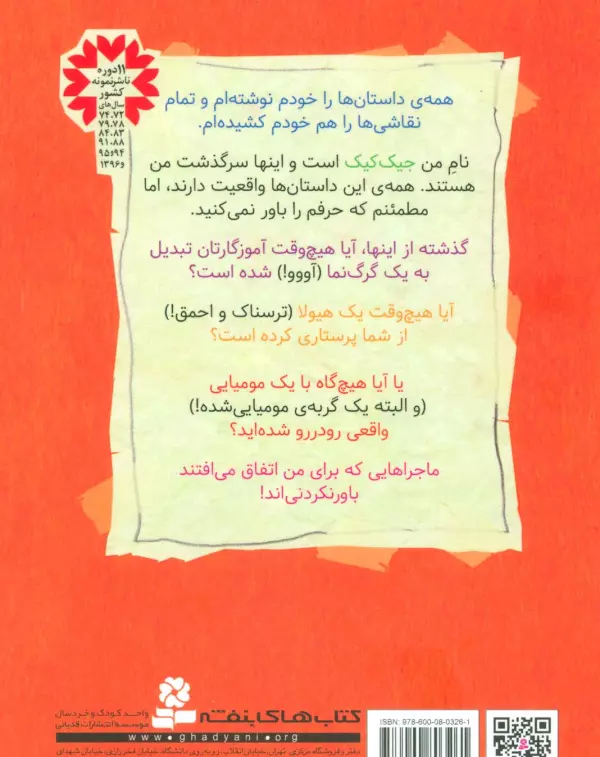 ۱۱ دوره
ناشر نمونه
کشور
سال‌های
۷۴،۷۲
۷۹،۷۸
۸۴،۸۳
۹۱،۸۸
۹۵و۹۴
و۱۳۹۶
همه‌ی داستان‌ها را خودم نوشته‌ام و تمام
نقاشی‌ها را هم خودم کشیده‌ام.
نامِ من جیک‌کیک است و اینها سرگذشت من
هستند. همه‌ی این داستان‌ها واقعیت دارند، اما
مطمئنم که حرفم را باور نمی‌کنید.
گذشته از اینها، آیا هیچ‌وقت آموزگارتان تبدیل
به یک گرگ‌نما (آووو!) شده است؟
آیا هیچ‌وقت یک هیولا (ترسناک و احمق!)
از شما پرستاری کرده است؟
یا آیا هیچ‌گاه با یک مومیایی
(و البته یک گربه‌ی مومیایی‌شده!)
واقعی رودررو شده‌اید؟
ماجراهایی که برای من اتفاق می‌افتند
باورنکردنی‌اند!
کتاب‌های بنفشه
واحد کودک و خردسال
موسسه انتشارات قدیانی
www.ghadyani.org
دفتر و فروشگاه مرکزی: تهران، خیابان انقلاب، روبه‌روی دانشگاه، خیابان فخررازی، خیابان شهدای
ISBN: 978-600-08-0326-1